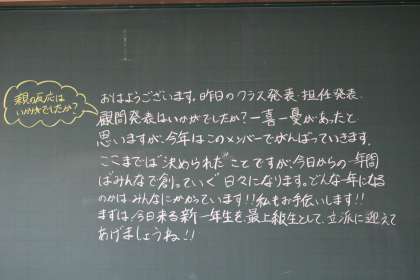 親の反応は
いかがでしたか?
おはようございます。昨日のクラス発表・担任発表・
顧問発表はいかがでしたか?一喜一憂があったと
思いますが、今年はこのメンバーでがんばっていきます。
ここまでは"決められた"ことですが、今日からの一年間
はみんなで創っていく日々になります。どんな一年になる
のかは みんなにかかっています!!私もお手伝いします!!
まずは、今日来る新一年生を、最上級生として、立派に迎えて
あげましょうね!!